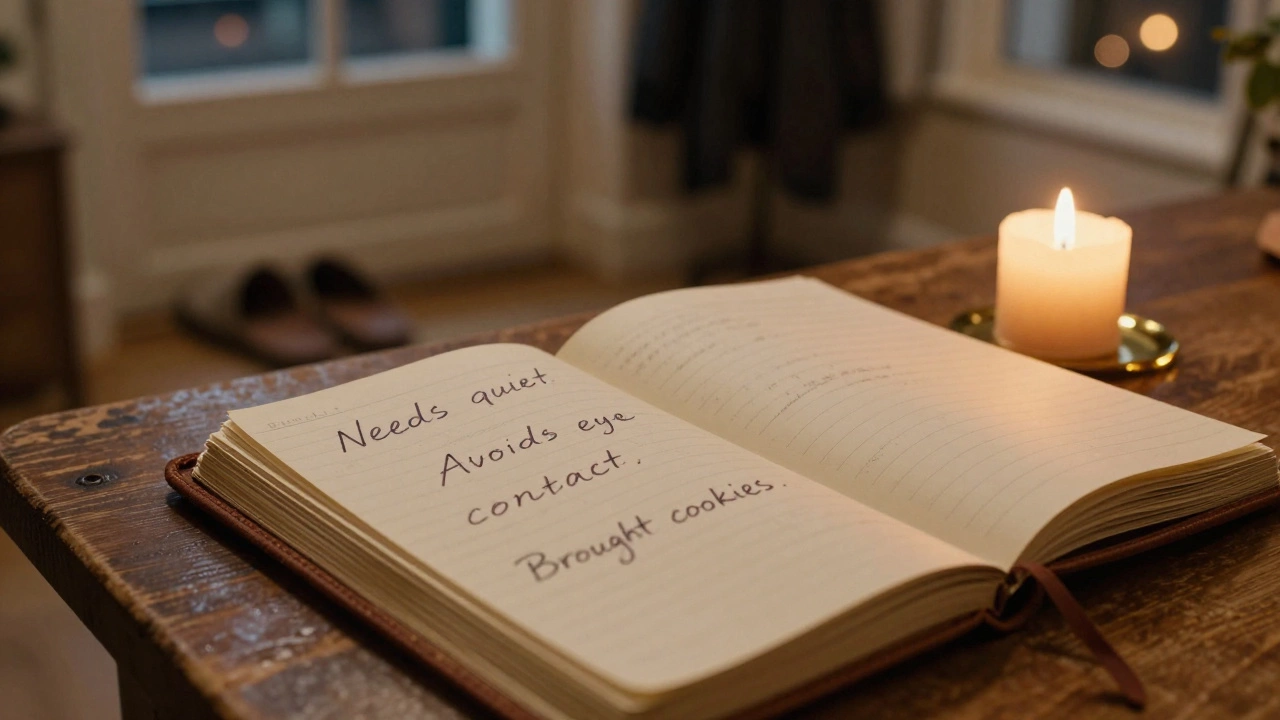 Needs quiet.
Avoids eye
contact.
Brought cookies.